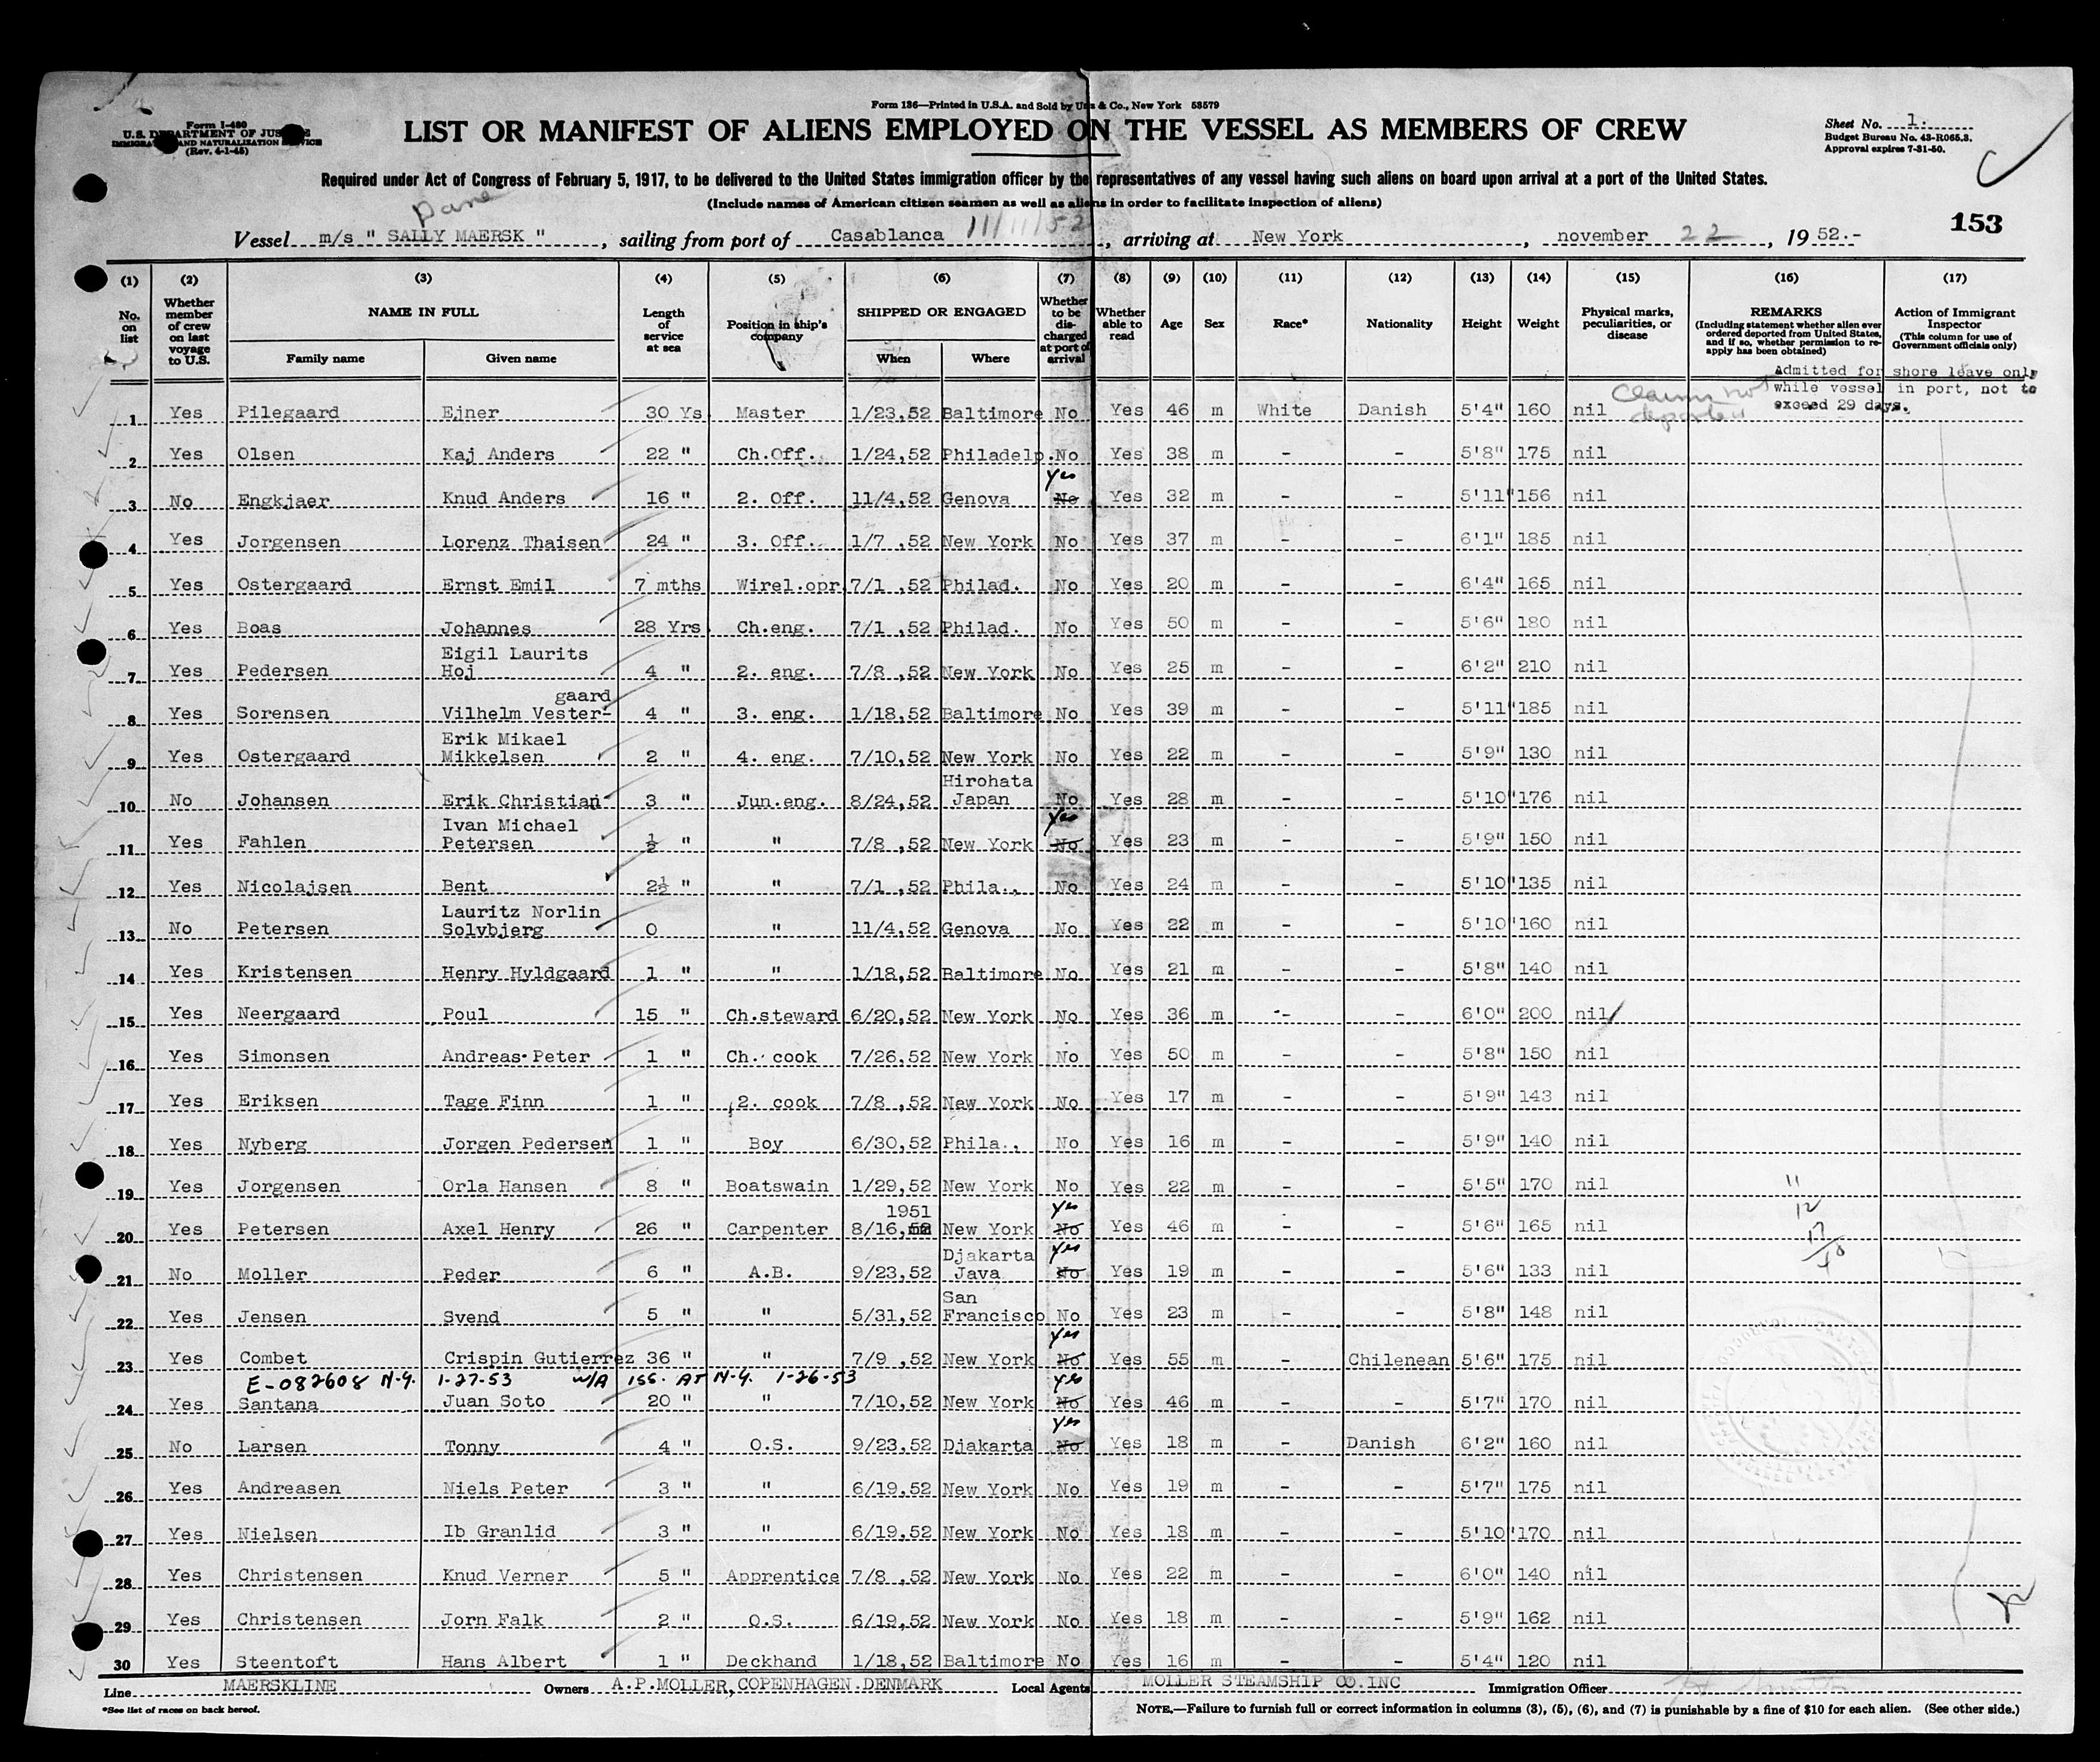 Form 136—Printed in U.S.A. and Sold by Unz & Co., New York 53579
Form I-480
U.S. DEPARTMENT OF JUSTICE
IMMIGRATION AND NATURALIZATION SERVICE
(Rev. 4-1-45)
LIST OR MANIFEST OF ALIENS EMPLOYED ON THE VESSEL AS MEMBERS OF CREW
Sheet No. 1.
Budget Bureau No. 43-R065.3.
Approval expires 7-31-50.
Required under Act of Congress of February 5, 1917, to be delivered to the United States immigration officer by the representatives of any vessel having such aliens on board upon arrival at a port of the United States.
(Include names of American citizen seamen as well as aliens in order to facilitate inspection of aliens)
Dane
153
Vessel m/s " SALLY MAERSK " , sailing from port of Casablanca 11/11/52 , arriving at New York , november 22 , 19 52.-
(1) (2) (3) (4) (5) (6) (7) (8) (9) (10) (11) (12) (13) (14) (15) (16) (17)
No. on list
Whether member of crew on last voyage to U.S.
NAME IN FULL
Family name Given name
Length of service at sea
Position in ship's company
SHIPPED OR ENGAGED
When Where
Whether to be discharged at port of arrival
Whether able to read
Age Sex Race* Nationality Height Weight
Physical marks, peculiarities, or disease
REMARKS
(Including statement whether alien ever ordered deported from United States, and if so, whether permission to reapply has been obtained)
Action of Immigrant Inspector
(This column for use of Government officials only)
Admitted for shore leave only
while vessel in port, not to
exceed 29 days.
Claims not
deported
1 Yes Pilegaard Ejner 30 Ys Master 1/23,52 Baltimore No Yes 46 m White Danish 5'4" 160 nil
2 Yes Olsen Kaj Anders 22 " Ch.Off. 1/24,52 Philadelp. No Yes 38 m - - 5'8" 175 nil
3 No Engkjaer Knud Anders 16 " 2. Off. 11/4,52 Genova No yes Yes 32 m - - 5'11" 156 nil
4 Yes Jorgensen Lorenz Thaisen 24 " 3. Off. 1/7 ,52 New York No Yes 37 m - - 6'1" 185 nil
5 Yes Ostergaard Ernst Emil 7 mths Wirel.opr. 7/1 ,52 Philad. No Yes 20 m - - 6'4" 165 nil
6 Yes Boas Johannes 28 Yrs. Ch.eng. 7/1 ,52 Philad. No Yes 50 m - - 5'6" 180 nil
7 Yes Pedersen Eigil Laurits Hoj 4 " 2. eng. 7/8 ,52 New York No Yes 25 m - - 6'2" 210 nil
8 Yes Sorensen Vilhelm Vester-gaard 4 " 3. eng. 1/18,52 Baltimore No Yes 39 m - - 5'11" 185 nil
9 Yes Ostergaard Erik Mikael Mikkelsen 2 " 4. eng. 7/10,52 New York No Yes 22 m - - 5'9" 130 nil
10 No Johansen Erik Christian 3 " Jun.eng. 8/24,52 Hirohata Japan No Yes 28 m - - 5'10" 176 nil
11 Yes Fahlen Ivan Michael Petersen ½ " " 7/8 ,52 New York No yes Yes 23 m - - 5'9" 150 nil
12 Yes Nicolajsen Bent 2½ " " 7/1 ,52 Phila., No Yes 24 m - - 5'10" 135 nil
13 No Petersen Lauritz Norlin Solvbjerg 0 " 11/4,52 Genova No Yes 22 m - - 5'10" 160 nil
14 Yes Kristensen Henry Hyldgaard 1 " " 1/18,52 Baltimore No Yes 21 m - - 5'8" 140 nil
15 Yes Neergaard Poul 15 " Ch.steward 6/20,52 New York No Yes 36 m - - 6'0" 200 nil
16 Yes Simonsen Andreas Peter 1 " Ch. cook 7/26,52 New York No Yes 50 m - - 5'8" 150 nil
17 Yes Eriksen Tage Finn 1 " 2. cook 7/8 ,52 New York No Yes 17 m - - 5'9" 143 nil
18 Yes Nyberg Jorgen Pedersen 1 " Boy 6/30,52 Phila., No Yes 16 m - - 5'9" 140 nil
19 Yes Jorgensen Orla Hansen 8 " Boatswain 1/29,52 New York No Yes 22 m - - 5'5" 170 nil
20 Yes Petersen Axel Henry 26 " Carpenter 8/16, 1951 New York No yes Yes 46 m - - 5'6" 165 nil
21 No Moller Peder 6 " A.B. 9/23,52 Djakarta Java No yes Yes 19 m - - 5'6" 133 nil
22 Yes Jensen Svend 5 " " 5/31,52 San Francisco No Yes 23 m - - 5'8" 148 nil
23 Yes Combet Crispin Gutierrez 36 " " 7/9 ,52 New York No yes Yes 55 m - Chilenean 5'6" 175 nil
E-082608 N.Y. 1-27-53 W/A ISS. AT N.Y. 1-26-53
24 Yes Santana Juan Soto 20 " " 7/10,52 New York No yes Yes 46 m - - 5'7" 170 nil
25 No Larsen Tonny 4 " O.S. 9/23,52 Djakarta No yes Yes 18 m - Danish 6'2" 160 nil
26 Yes Andreasen Niels Peter 3 " " 6/19,52 New York No Yes 19 m - - 5'7" 175 nil
27 Yes Nielsen Ib Granlid 3 " " 6/19,52 New York No Yes 18 m - - 5'10" 170 nil
28 Yes Christensen Knud Verner 5 " Apprentice 7/8 ,52 New York No Yes 22 m - - 6'0" 140 nil
29 Yes Christensen Jorn Falk 2 " O.S. 6/19,52 New York No Yes 18 m - - 5'9" 162 nil
30 Yes Steentoft Hans Albert 1 " Deckhand 1/18,52 Baltimore No Yes 16 m - - 5'4" 120 nil
11
12
17
Line MAERSKLINE Owners A.P.MOLLER, COPENHAGEN.DENMARK Local Agents MOLLER STEAMSHIP CO.INC Immigration Officer
*See list of races on back hereof.
NOTE.—Failure to furnish full or correct information in columns (3), (5), (6), and (7) is punishable by a fine of $10 for each alien. (See other side.)